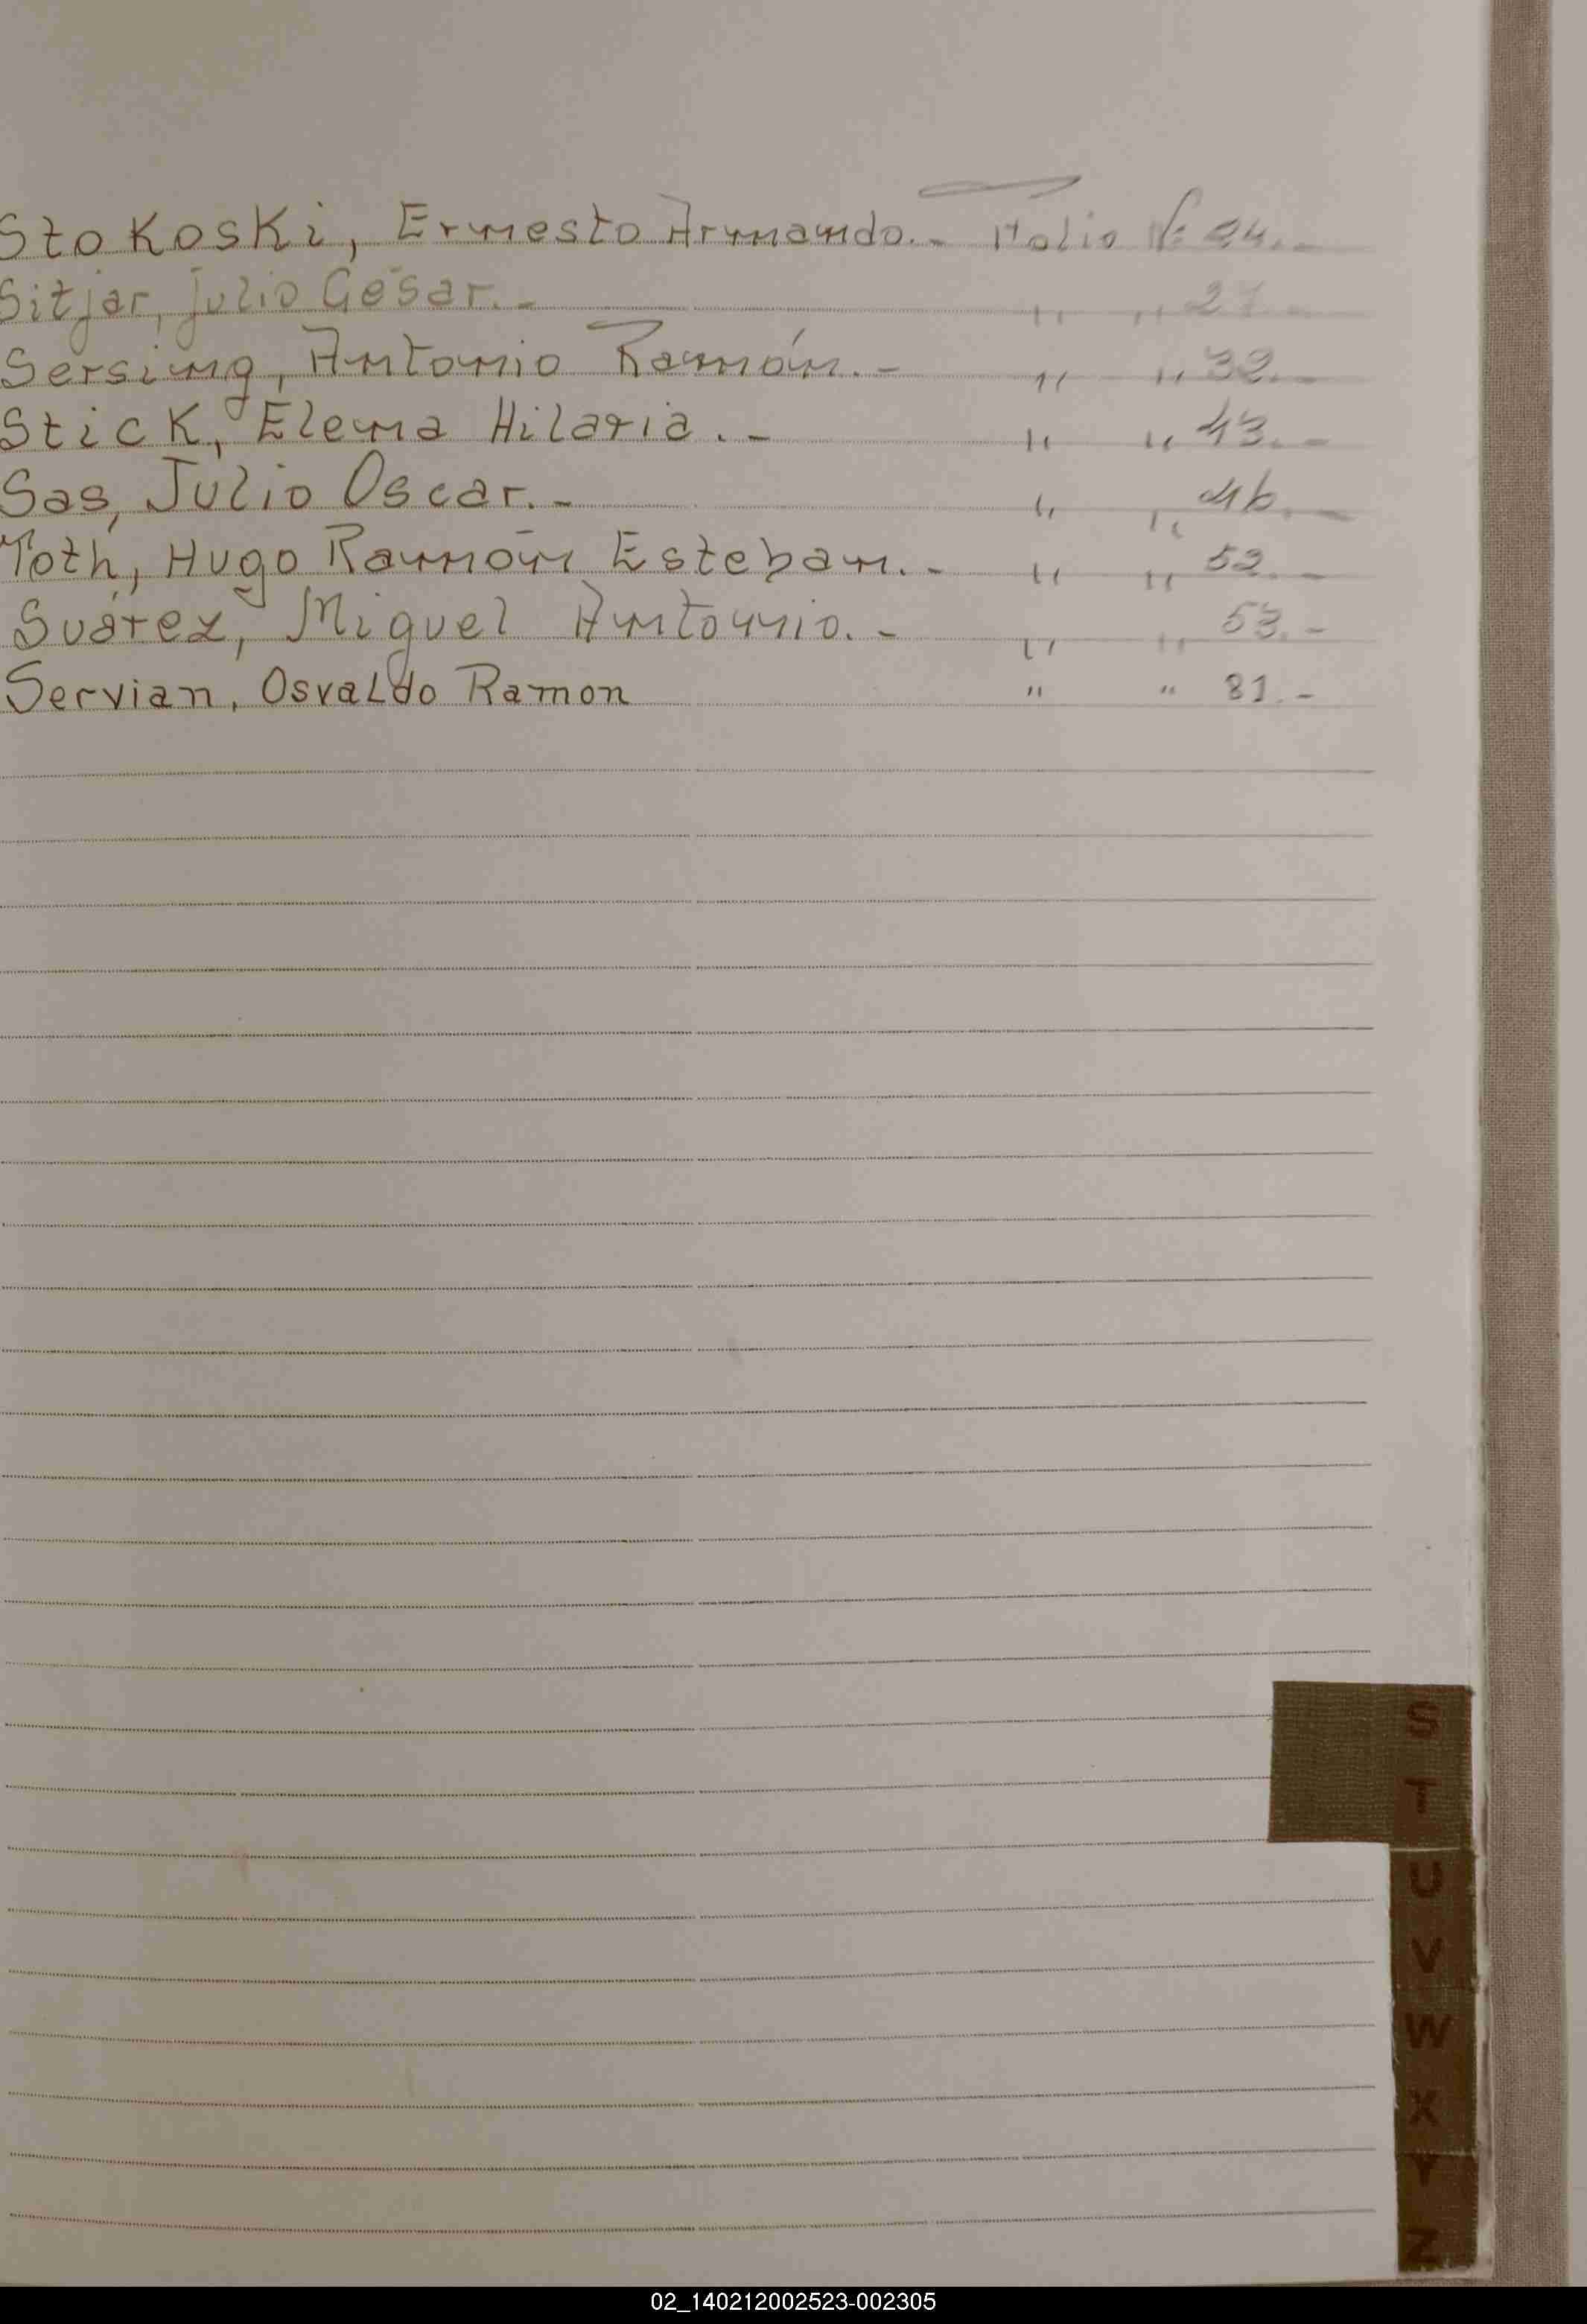 Stokoski, Ernesto Armando.- Folio Nº 24.-
Sitjar, Julio César.- " " 27.-
Sersing, Antonio Ramón.- " " 32.-
Stick, Elena Hilaria.- " " 43.-
Sas, Julio Oscar.- " " 46.-
Toth, Hugo Ramón Esteban.- " " 52.-
Suárez, Miguel Antonio.- " " 53.-
Servian, Osvaldo Ramon " " 81.-
S
T
U
V
W
X
Y
Z
02_140212002523-002305